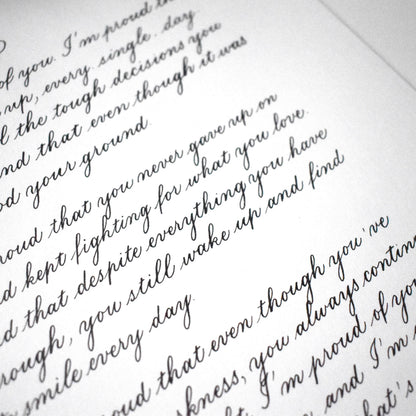 of you. I'm proud th
up, every single day.
the tough decisions you
and that even though it was
your ground.
proud that you never gave up on
kept fighting for what you love.
that despite everything you have
rough, you still wake up and find
smile every day.
proud that even though you've
kness, you always contin
I'm proud of you
and I'm
hat's